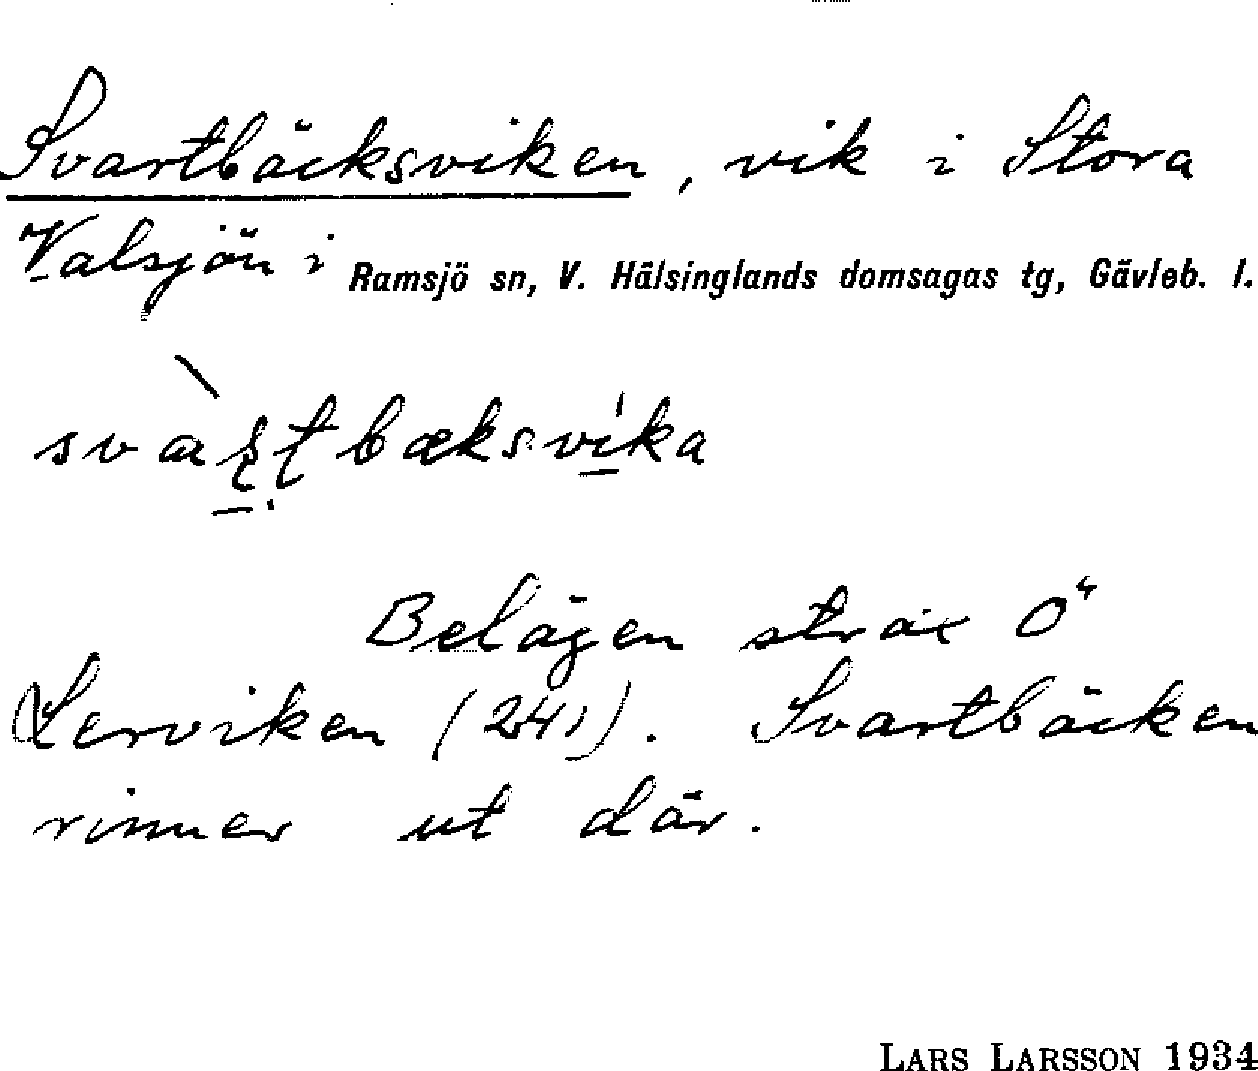 Svartbäcksviken, vik i Stora
Valsjön i Ramsjö sn, V. Hälsinglands domsagas tg, Gävleb. l.
Belägen strax Ö
Lerviken (241). Svartbäcken
rinner ut där.
LARS LARSSON 1934